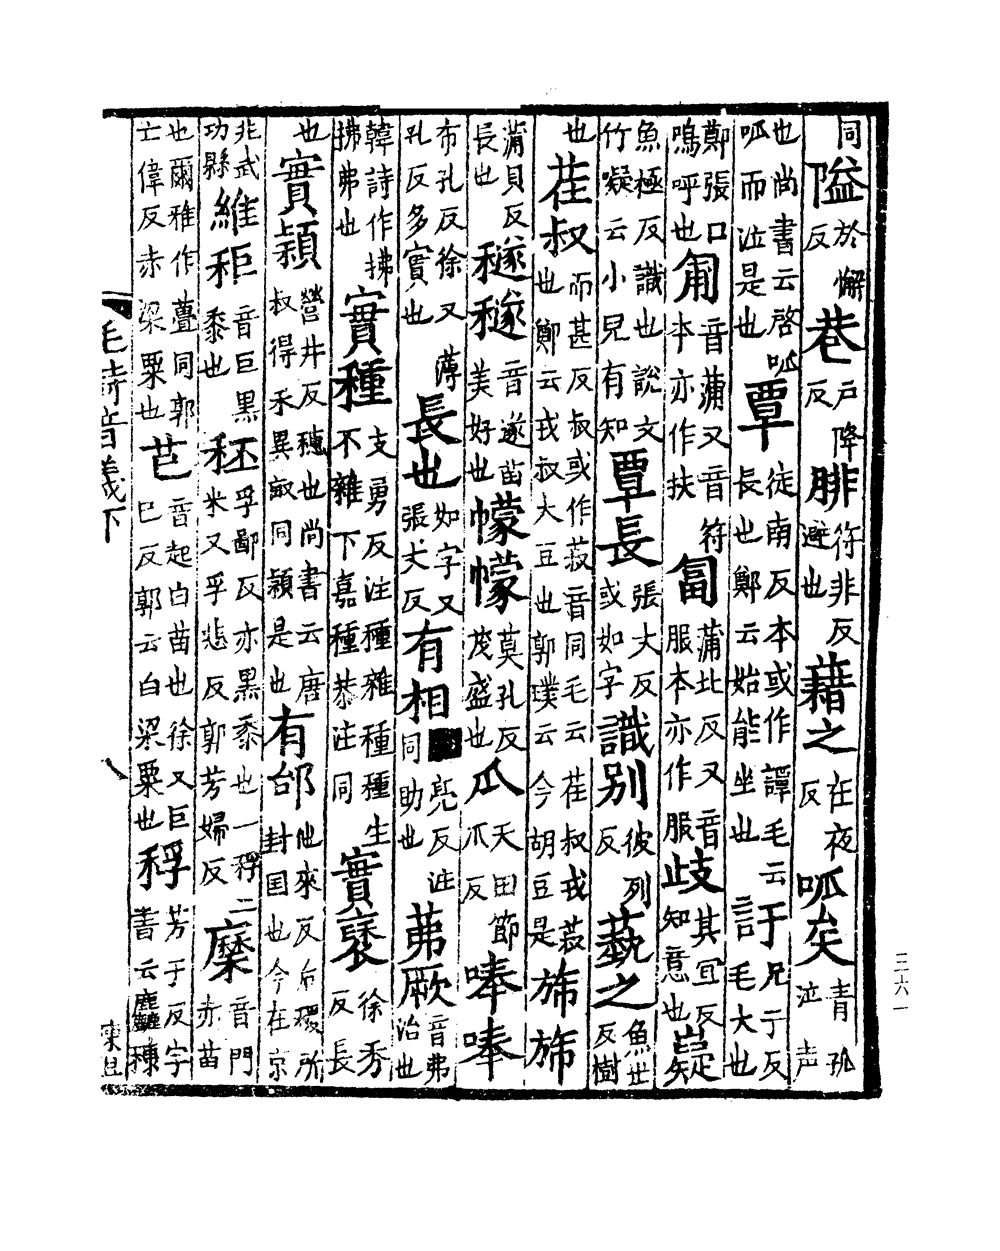 同隘於懈反巷戶降反腓符非反避也藉之在夜反呱矣青孤泣声
也尚書云啓呱呱而泣是也覃徒南反本或作譚毛云長也鄭云始能坐也訏兄于反毛大也
鄭張口嗚呼也匍音蒲又音符本亦作扶匐蒲北反又音服本亦作服歧其宜反知意也嶷
魚極反識也說文竹㘈云小兒有知覃長張大反或如字識別彼列反蓺之魚世反樹
也荏叔而甚反叔或作菽音同毛云荏叔戎菽也鄭云戎叔大豆也郭璞云今胡豆是旆旆
蒲貝反長也穟穟音遂苗美好也幪幪莫孔反茂盛也瓜天田節爪反唪唪
布孔反徐又薄孔反多實也長也如字又張丈反有相亮反注同助也茀厥音弗治也
韓詩作拂拂弗也實種支勇反注種雜種種生不雜下嘉種恭注同實褎徐秀反長
也實穎營井反穗也尚書云唐叔得禾異畝同穎是也有邰他來反后稷所封国也今在京
兆武功縣維秬音巨黑黍也秠孚鄙反亦黑黍也一稃二米又孚悲反郭芳婦反穈音門赤苗
也爾雅作虋同郭亡偉反赤梁粟也芑音起白苗也徐又巨巳反郭云白梁粟也稃芳于反字書云麤穅
毛詩音義下
三六一